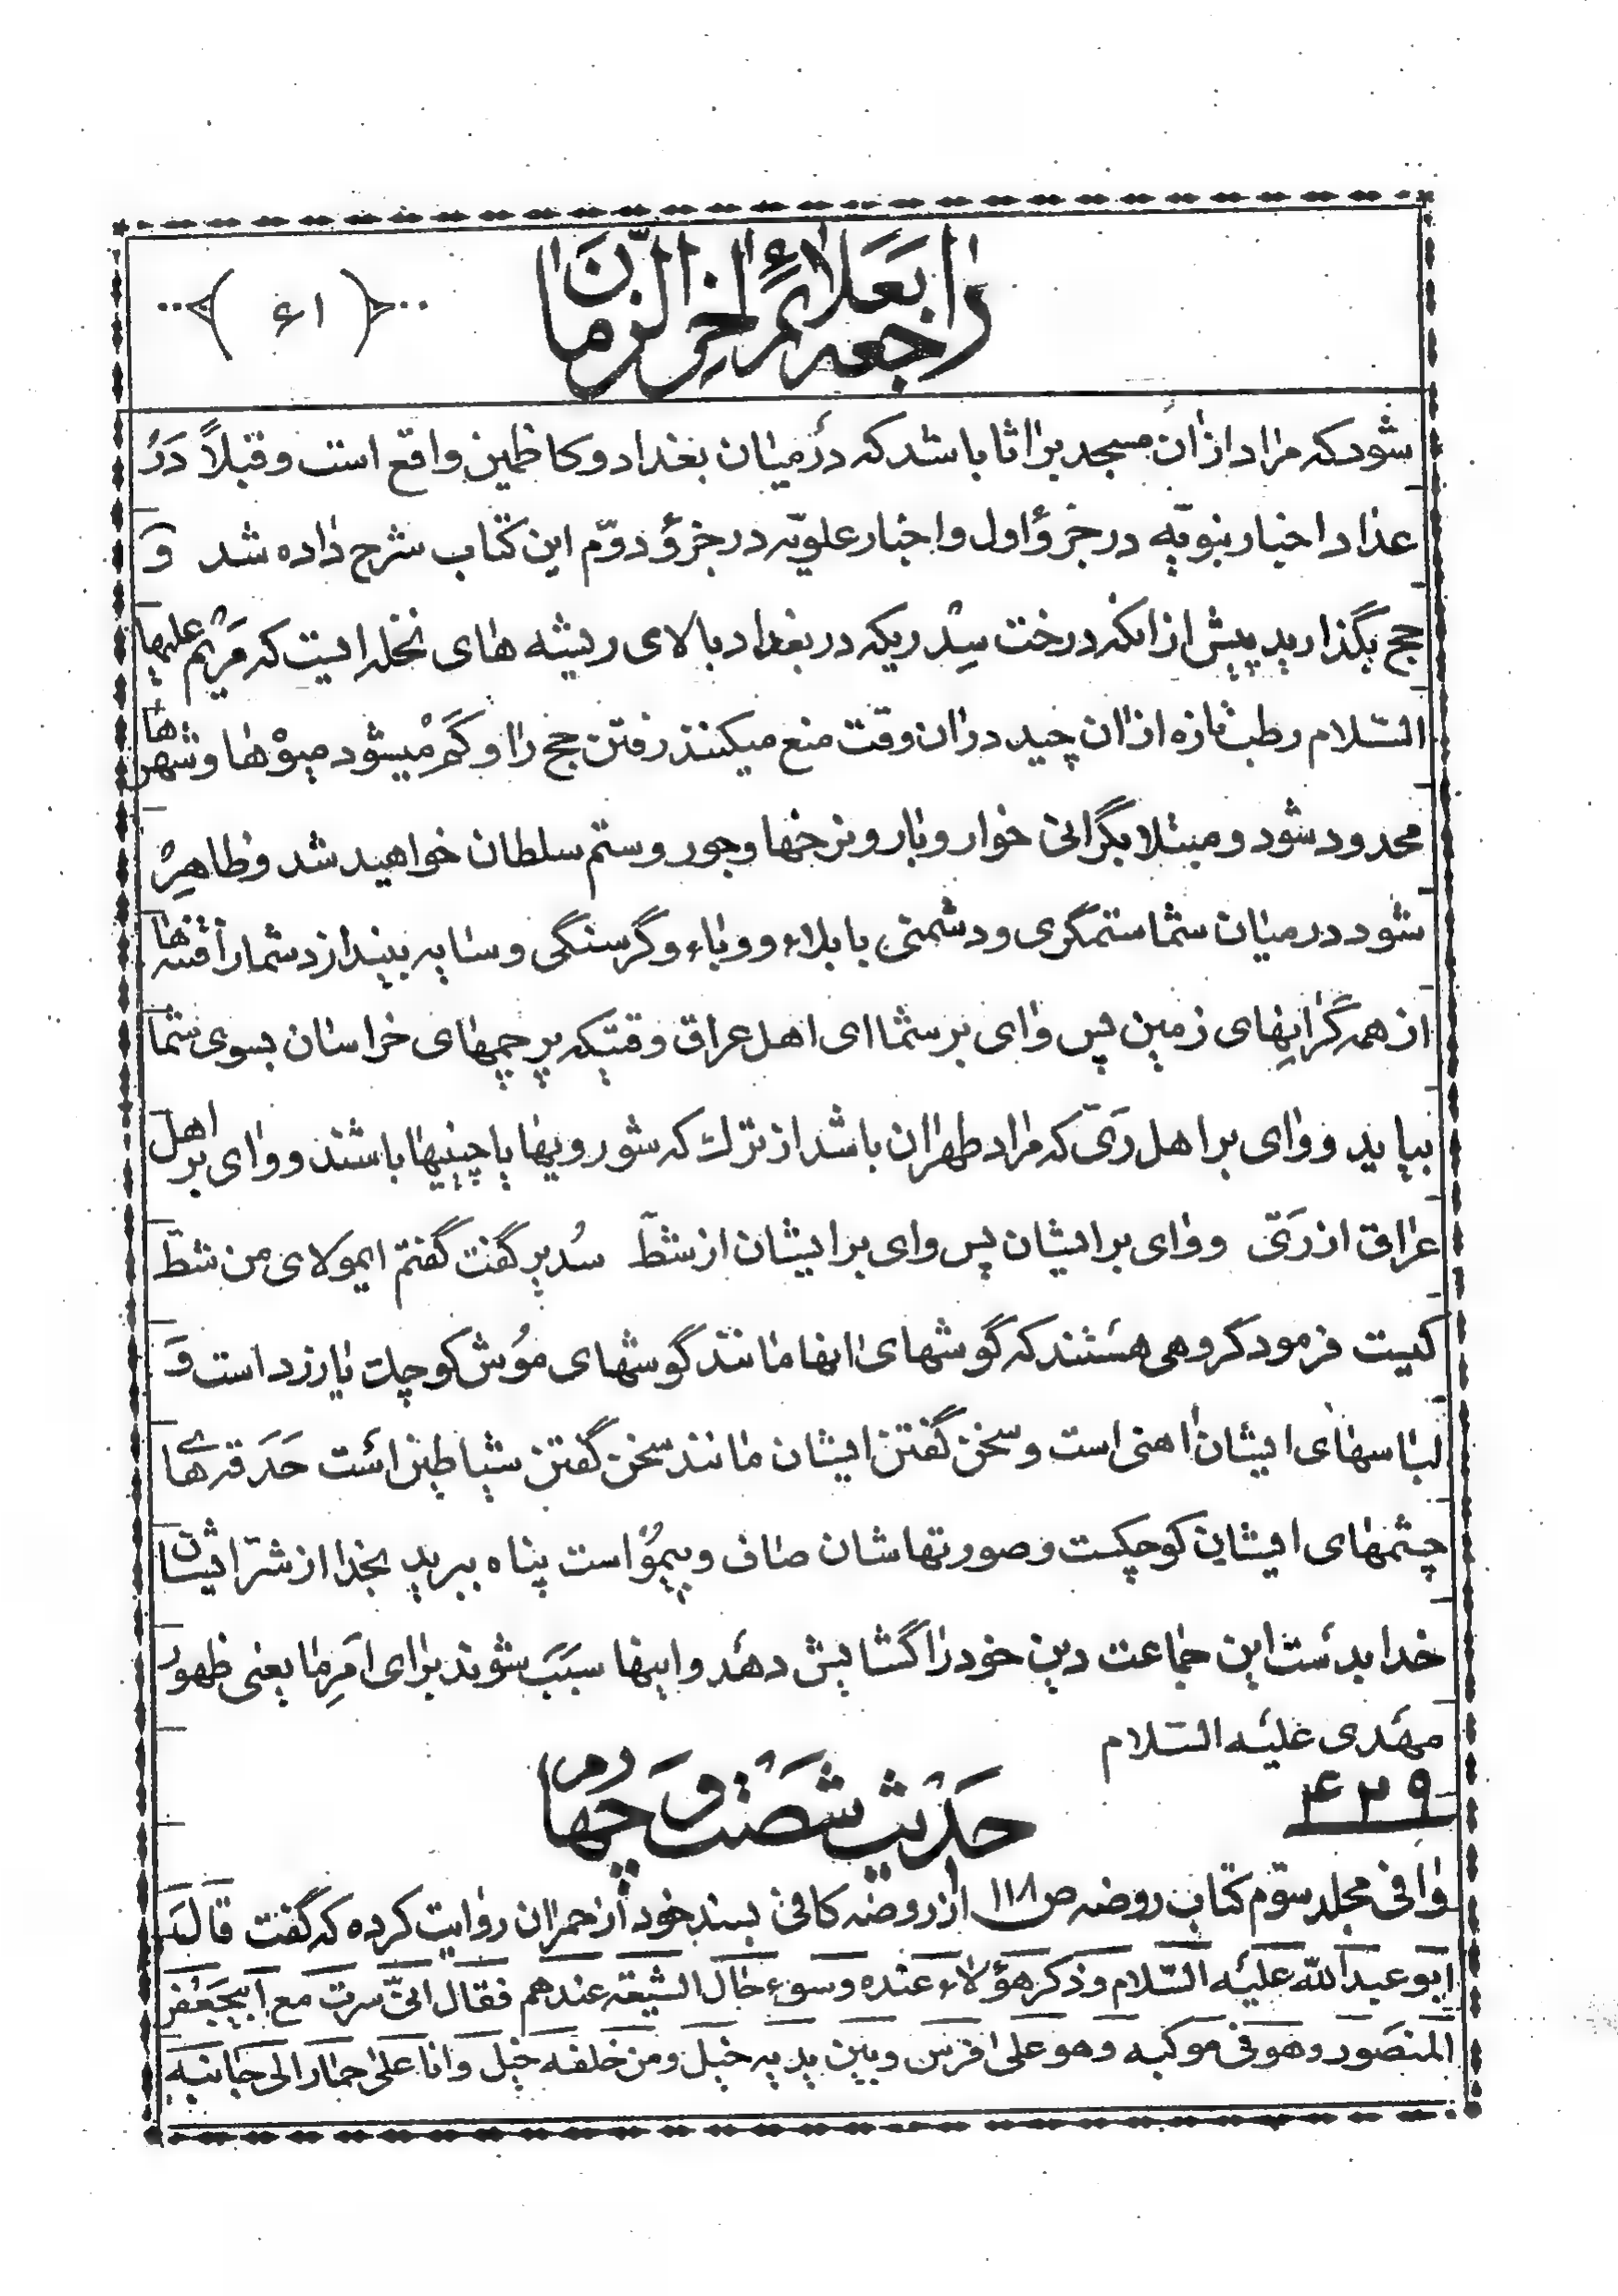 راجعه بعلائم آخر الزمان
(۶۱)
شود که مراد از آن مسجد براثا باشد که در میان بغداد و کاظمین واقع است و قبلاً در
عداد اخبار نبویه در جزؤ اول و اخبار علویّه در جزؤ دوّم این کتاب شرح داده شد و
حج بگذارید پیش از آنکه درخت سدریکه در بغداد بالای ریشه های نخله ایست که مریم علیها
السّلام رطب تازه از آن چید در آن وقت منع میکنند رفتن حج را و کم میشود میوه‌ها و شهرها
محدود شود و مبتلا بگرانی خوار و بار و نرخها و جور و ستم سلطان خواهید شد و ظاهر
شود در میان شما ستمگری و دشمنی با بلاء و وباء و گرسنگی و سایه بیندازد شما را فتنه‌ها
از همه گرانیهای زمین پس وای بر شما ای اهل عراق وقتیکه پرچمهای خراسان بسوی شما
بیاید و وای بر اهل ریّ که مراد طهران باشد از ترک که شورویها یا چینیها باشند و وای بر اهل
عراق از ریّ و وای بر ایشان پس وای بر ایشان از شطّ سدیر گفت گفتم ایمولای من شطّ
کیست فرمود گروهی هستند که گوشهای آنها مانند گوشهای موش کوچک یا رزد است و
لباسهای ایشان آهنی است و سخن گفتن ایشان مانند سخن گفتن شیاطین است حدقه‌های
چشمهای ایشان کوچکست و صورتهاشان صاف و بیمو است پناه ببرید بخدا از شرّ ایشان
خدا بدست این جماعت دین خود را گشایش دهد و اینها سبب شوند برای امر ما یعنی ظهور
مهدی علیه السّلام
۴۲۹
حدیث شصت و چهارم
وافی مجلد سوّم کتاب روضه ص ۱۱۸ از روضه کافی بسند خود از حمران روایت کرده که گفت قال
ابو عبد الله علیه السّلام و ذکر هؤلاء عنده و سوء حال الشیعه عندهم فقال انّی سرت مع ابیجعفر
المنصور و هو فی موکبه و هو علی فرس و بین یدیه خیل و من خلفه خیل و انا علی حمار الی جانبه